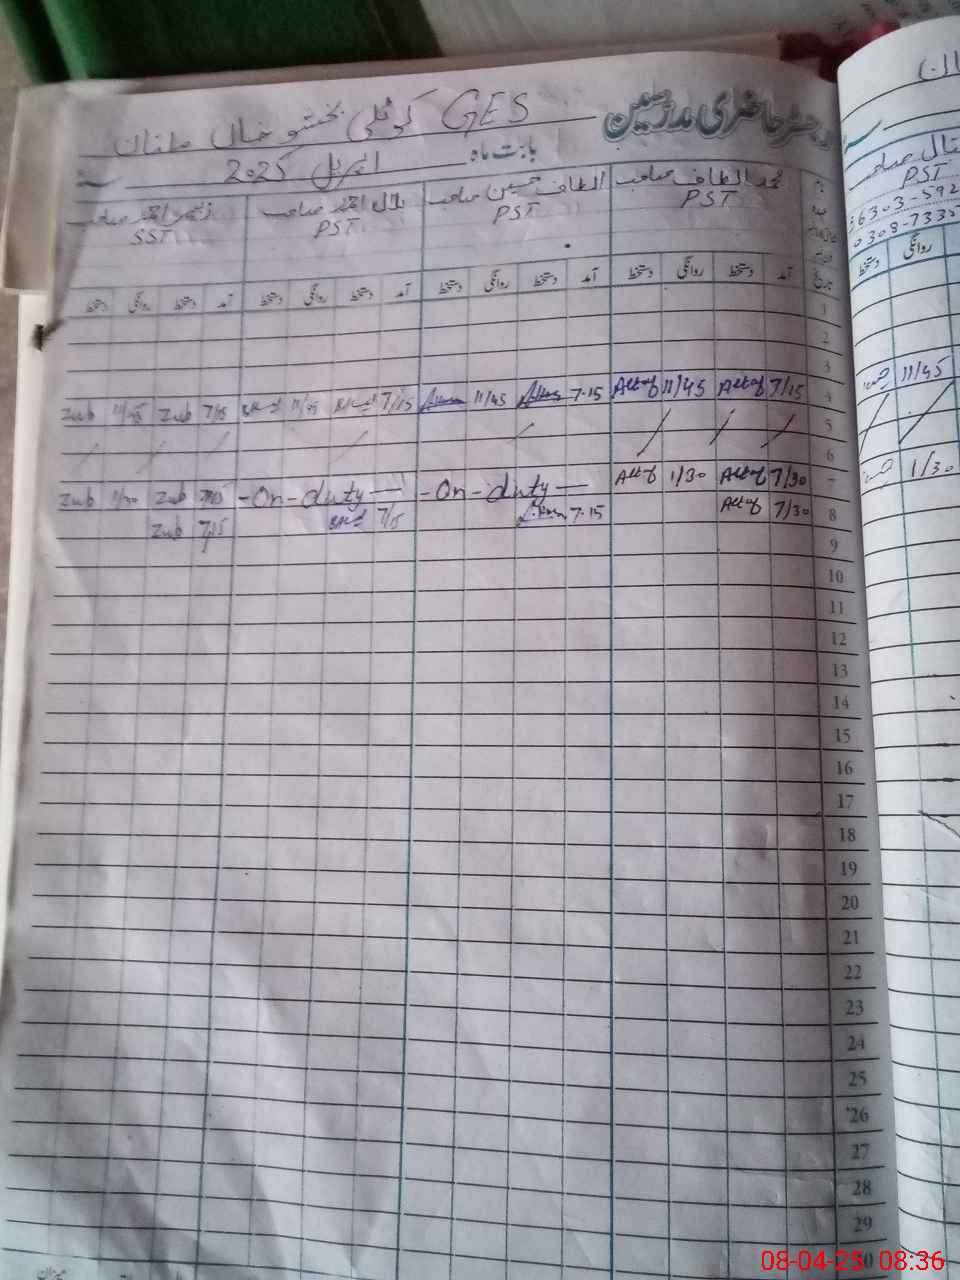 رجسٹر حاضری مدرسین GES کوٹلی بخشو خاں ملتان
بابت ماہ اپریل 2025ء
محمد الطاف صاحب PST الطاف حسین صاحب PST بلال احمد صاحب PST زبیر احمد صاحب SST
تاریخ آمد دستخط روانگی دستخط آمد دستخط روانگی دستخط آمد دستخط روانگی دستخط آمد دستخط روانگی دستخط
1
2
3
4 7/15 Altaf 11/45 Altaf 7-15 11/45 7/15 11/45 7/15 Zub 11/45 Zub
5
6
7 7/30 Altaf 1/30 Altaf -On-duty- -On-duty- 7/15 Zub 1/30 Zub
8 7/30 Altaf 7-15 7/15 7/15 Zub
9
10
11
12
13
14
15
16
17
18
19
20
21
22
23
24
25
26
27
28
29
میزان
PST
0308-733
روانگی دستخط
11/45
1/30
08-04-25 08:36